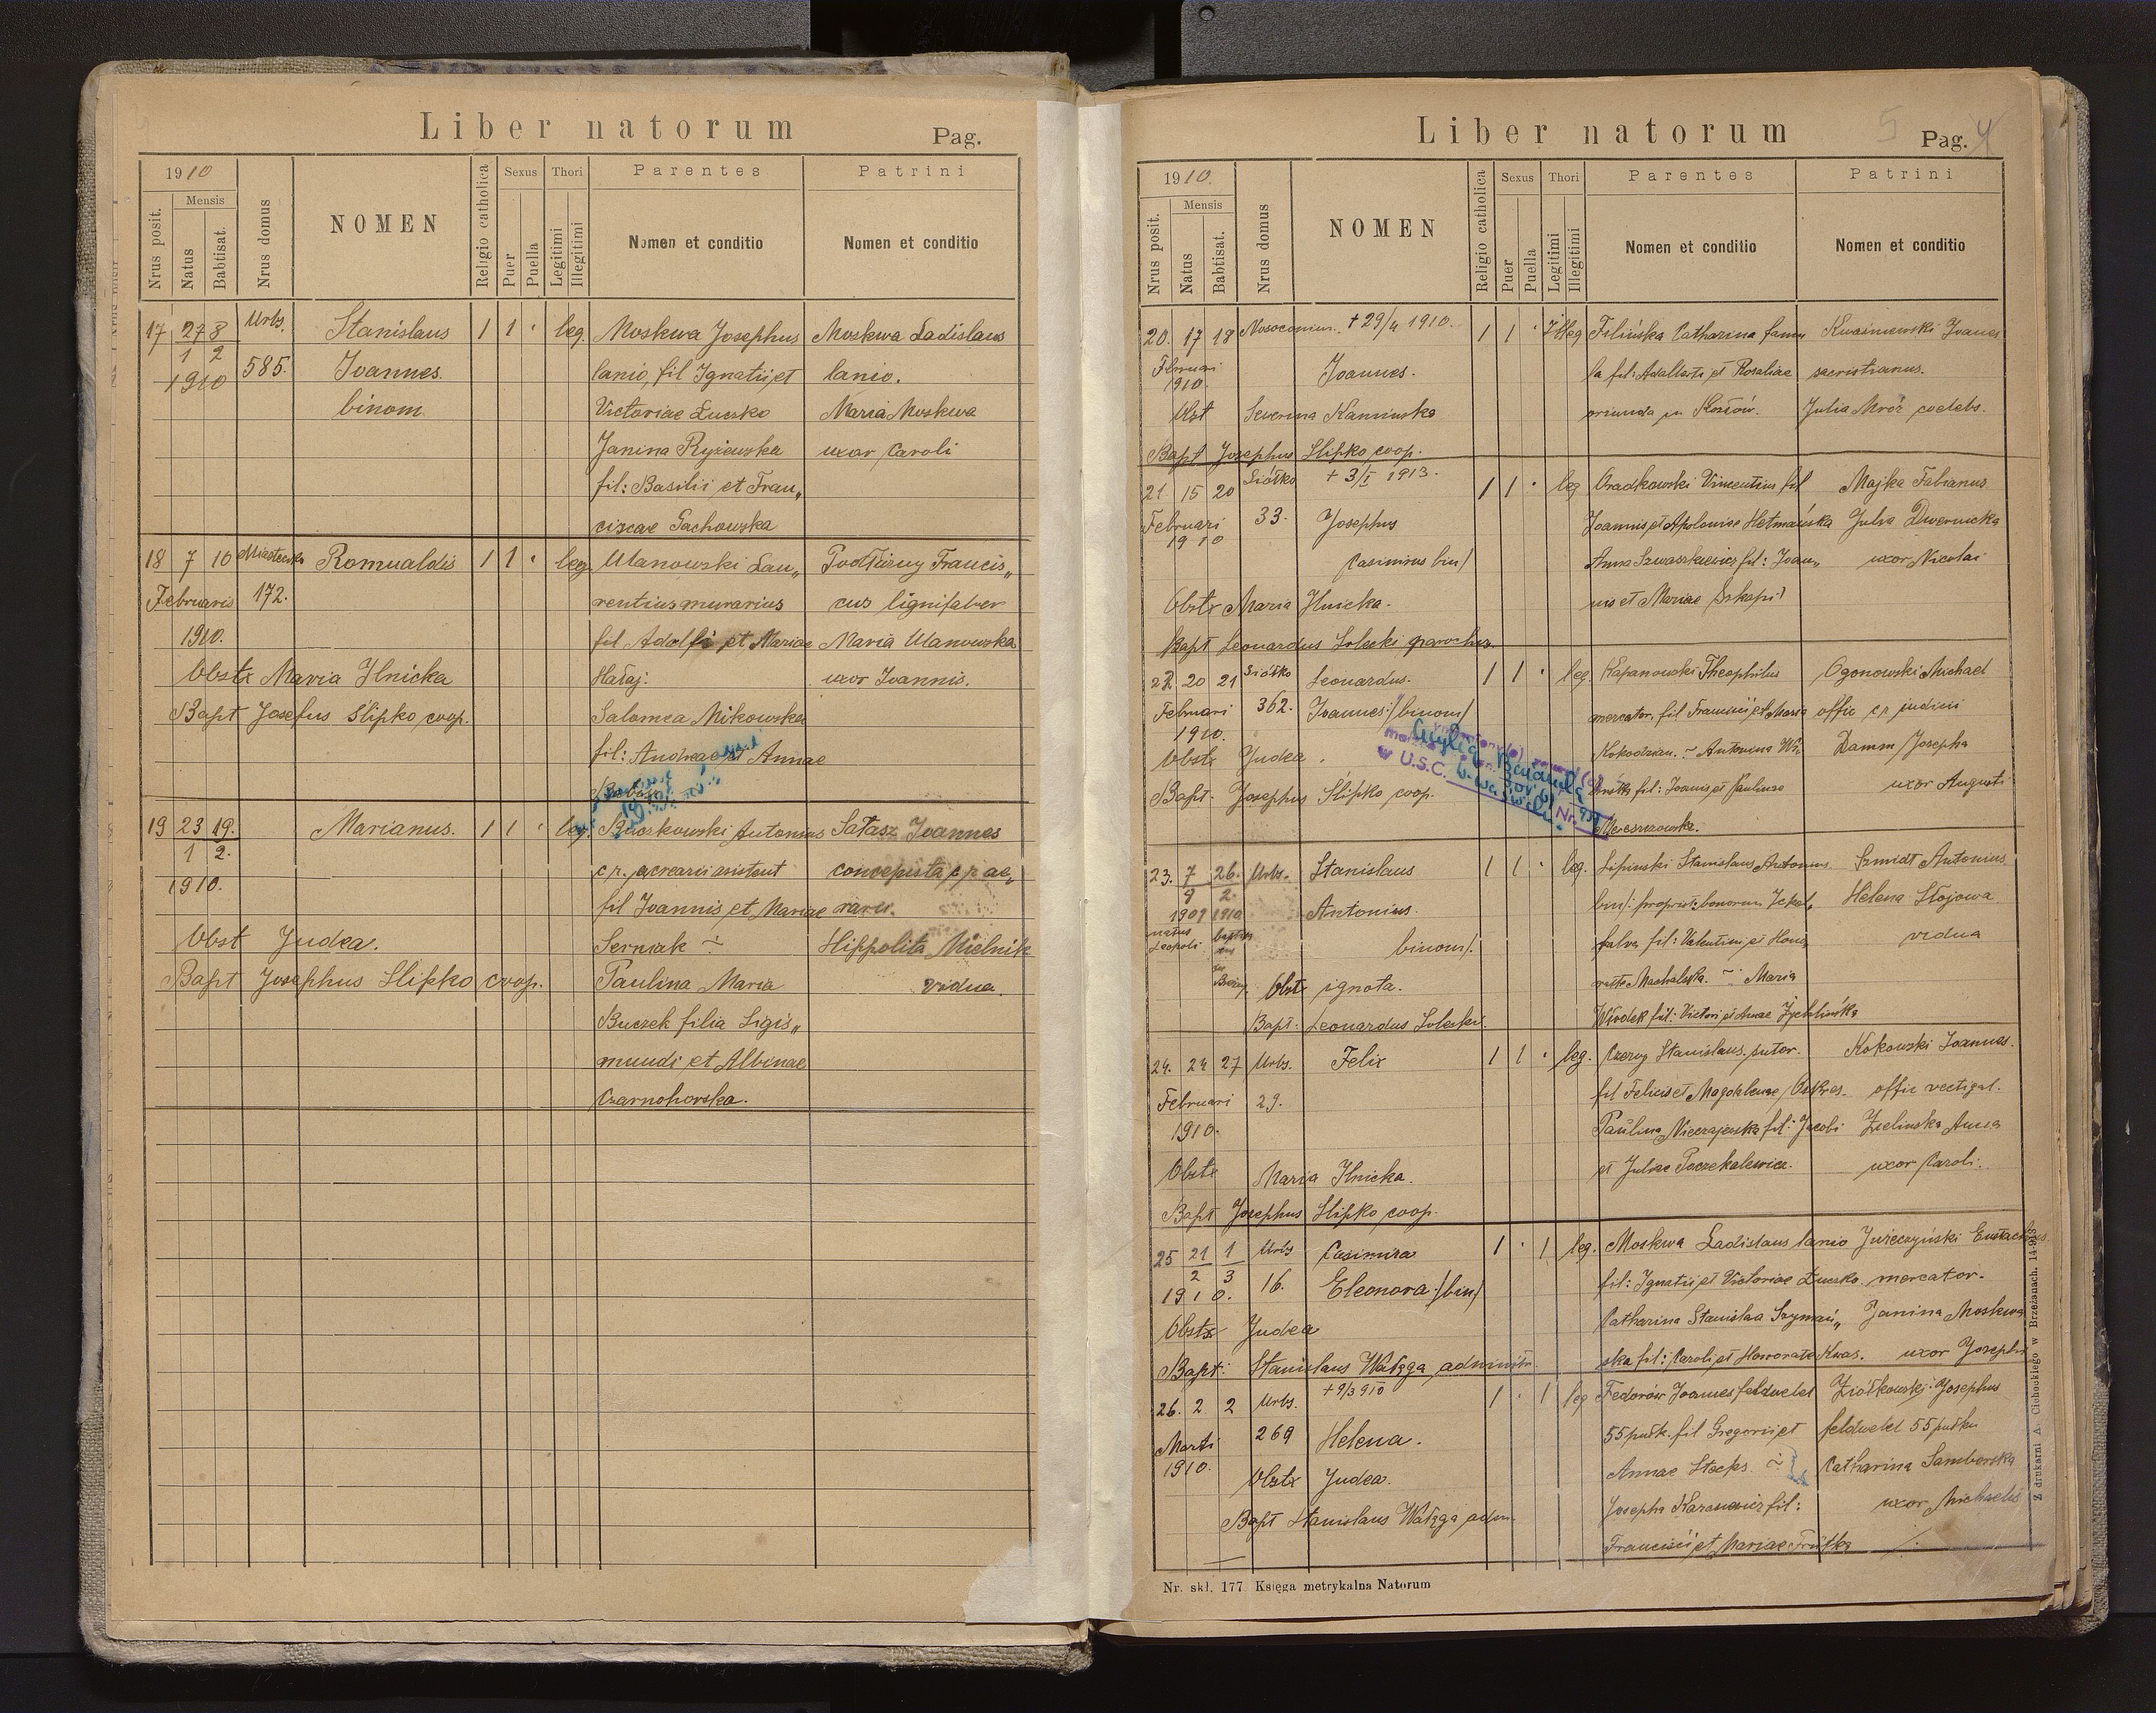 Liber natorum
Pag.
1910
Mensis
Nrus posit.
Natus
Babtisat.
Nrus domus
NOMEN
Religio catholica
Sexus
Puer
Puella
Thori
Legitimi
Illegitimi
Parentes
Nomen et conditio
Patrini
Nomen et conditio
17 27 8 Urbs. Stanislaus 1 1 · leg. Moskwa Josephus Moskwa Ladislaus
1 2
1910 585. Joannes. lanio, fil Ignatii et lanio.
binom. Victoriae Łucsko Maria Moskwa
Janina Ryżewska uxor Caroli
fil: Basilii et Fran„
ciscae Gachowska
18 7 10 Miasteczko Romualdis 1 1 · leg. Ulanowski Lau„ Podłużny Francis„
Februaris 172. rentius murarius cus lignifaber
1910. fil Adolfi et Mariae Maria Ulanowska
Obstx Maria Ilnicka Hałaj. uxor Joannis.
Bapt Josefus Slipko coop. Salomea Nikowska
fil: Andreae et Annae
19 23 19. Marianus. 1 1 · leg. Buczkowski Antonius Sałasz Joannes
1 2.
1910. c. r. asistent concepista c r ae„
fil Joannis et Mariae rarii.
Obst Judea. Serniak ~ Hippolita Mielnik
Bapt Josephus Slipko coop. Paulina Maria vidua.
Buczek filia Sigis„
mundi et Albinae
Czarnohorska.
Liber natorum
5 Pag. 4
1910.
Mensis
Nrus posit.
Natus
Babtisat.
Nrus domus
NOMEN
Religio catholica
Sexus
Puer
Puella
Thori
Legitimi
Illegitimi
Parentes
Nomen et conditio
Patrini
Nomen et conditio
20. 17 18 Nosocomium. + 29/4 1910. 1 1 · Illeg Filińska Catharina famu Kwaśniewski Joannes
Februari
1910. Joannes. la fil: Adalberti et Rosaliae sacristianus.
Obst Severina Kaminska oriunda Julia Mróz coelebs.
Bapt Josephus Slipko coop.
21 15 20 Siółko + 3/I 1913. 1 1 · leg Vincentius fil Majka Fabianus
Februari 33. Josephus Joannis et Apoloniae Hetmańska Julia Dwernicka
1910
Casimirus bin/ Anna Szwaszkiewicz fil: Joan„ uxor Nicolai
Obstx Maria Ilnicka. nis et Mariae
Bapt Leonardus Solecki parochus
22. 20 21 Siółko Leonardus. 1 1 · leg. Kapanowski Theophilus Ogonowski Michael
Februari 362. Joannes /binom/ mercator, fil Francisci et Maria offic c r judicii
1910. Antonina Damm Josepha
Obstx Judea. fil: Joannis et Paulinae uxor Augusti
Bapt. Josephus Slipko coop.
w U.S.C. Nr.
23. 7 26. Urbs. Stanislaus 1 1 · leg. Lipinski Stanislaus Antonius Szmidt Antonius
9 2.
1909 1910 Antonius. bin/: propriet: bonorum Helena Stojowa
natus Leopoli
binom/. fil: Valentini et Hono vidua
Obstx ignota. Machalska. ~ Maria
Bapt: Leonardus Solecki. Włodek fil: Victori et Annae Żychlińska
24. 24 27 Urbs. Felix 1 1 · leg. Czerny Stanislaus. sutor. Kokowski Joannes.
Februari 29. fil Felicis et Magdalenae offic vectigal.
1910. Paulina fil: Jacobi Zielinska Anna
Obstx Maria Ilnicka. et Juliae uxor Caroli.
Bapt Josephus Slipko coop.
25 21 1 Urbs Casimira 1 · 1 leg. Moskwa Ladislaus lanio Jureczyński Eustachius
2 3 16. Eleonora /bin/ fil: Ignatii et Victoriae Łucsko. mercator.
1910.
Obstx Judea Catharina Stanislaa Szymań„ Janina Moskwa
Bapt: Stanislaus Watęga administr. ska fil: Caroli et Honorata Kwas. uxor Josephi
26. 2 2 Urbs. + 9/3 910 1 · 1 leg Fedorów Joannes feldwebel Ziółkowski Josephus
Marti 269 Helena. 55 pułk. fil Gregorii et feldwebel 55 pułku
1910. Obstx Judea. Annae Catharina Samborska
Bapt Stanislaus Watęga adm. Josepha Karasiewicz fil: uxor Michaelis
Francisci et Mariae
Nr. skł. 177 Księga metrykalna Natorum
Z drukarni A. Cichockiego w Brzeżanach. 14-913